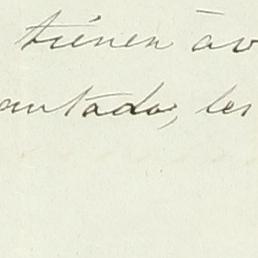 tienen av
antado, les